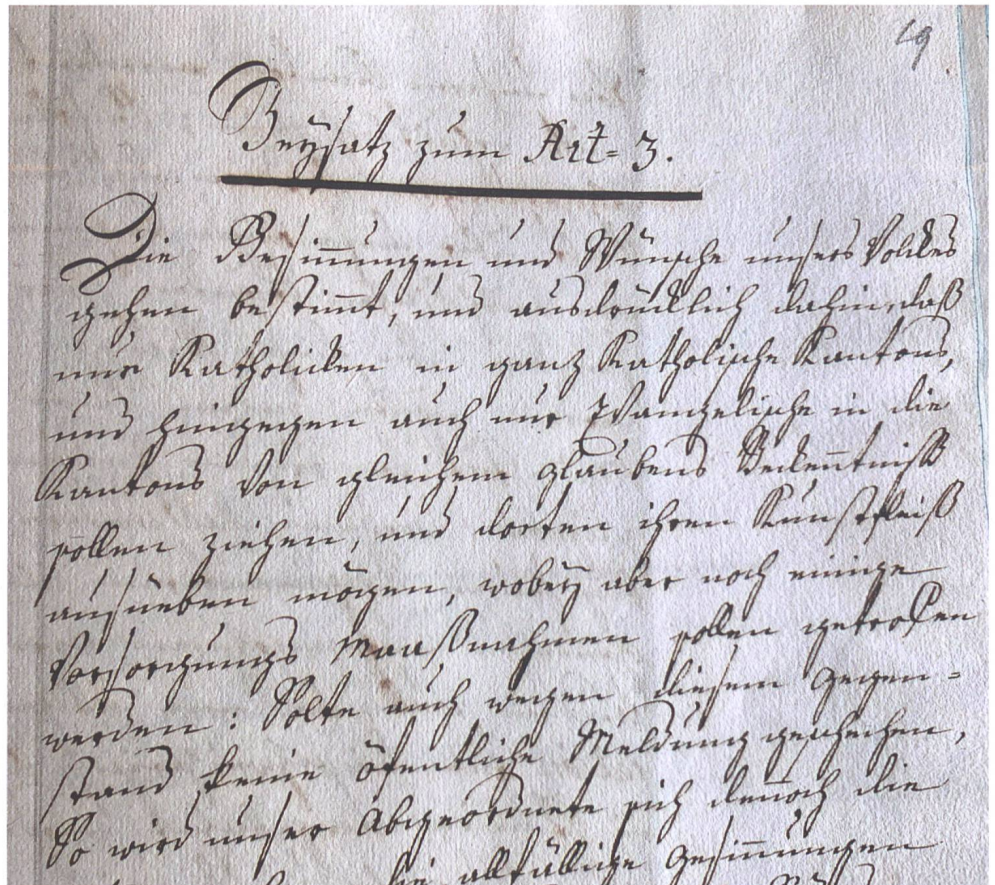 19
Beÿsatz zum Art= 3.
Die Gesinnungen und Wünsche unsers Volckes
gehen bestimt, und ausdrücklich dahin, daß
nur Katholicken in ganz Katholische Kantons,
und hingegen auch nur Evangelische in die
Kantons von gleichem glaubens Bekenntniß
sollen ziehen, und dorten ihren Kunstfleiß
ausüeben mögen, wobeÿ aber noch einige
Vorsorgungs Maaßnahmen sollen getrofen
werden: Solte auch wegen diesem gegen=
stand keine öfentliche Meldung geschehen,
So wird unser Abgeordnete sich dennoch die
die allfällige gesinnungen